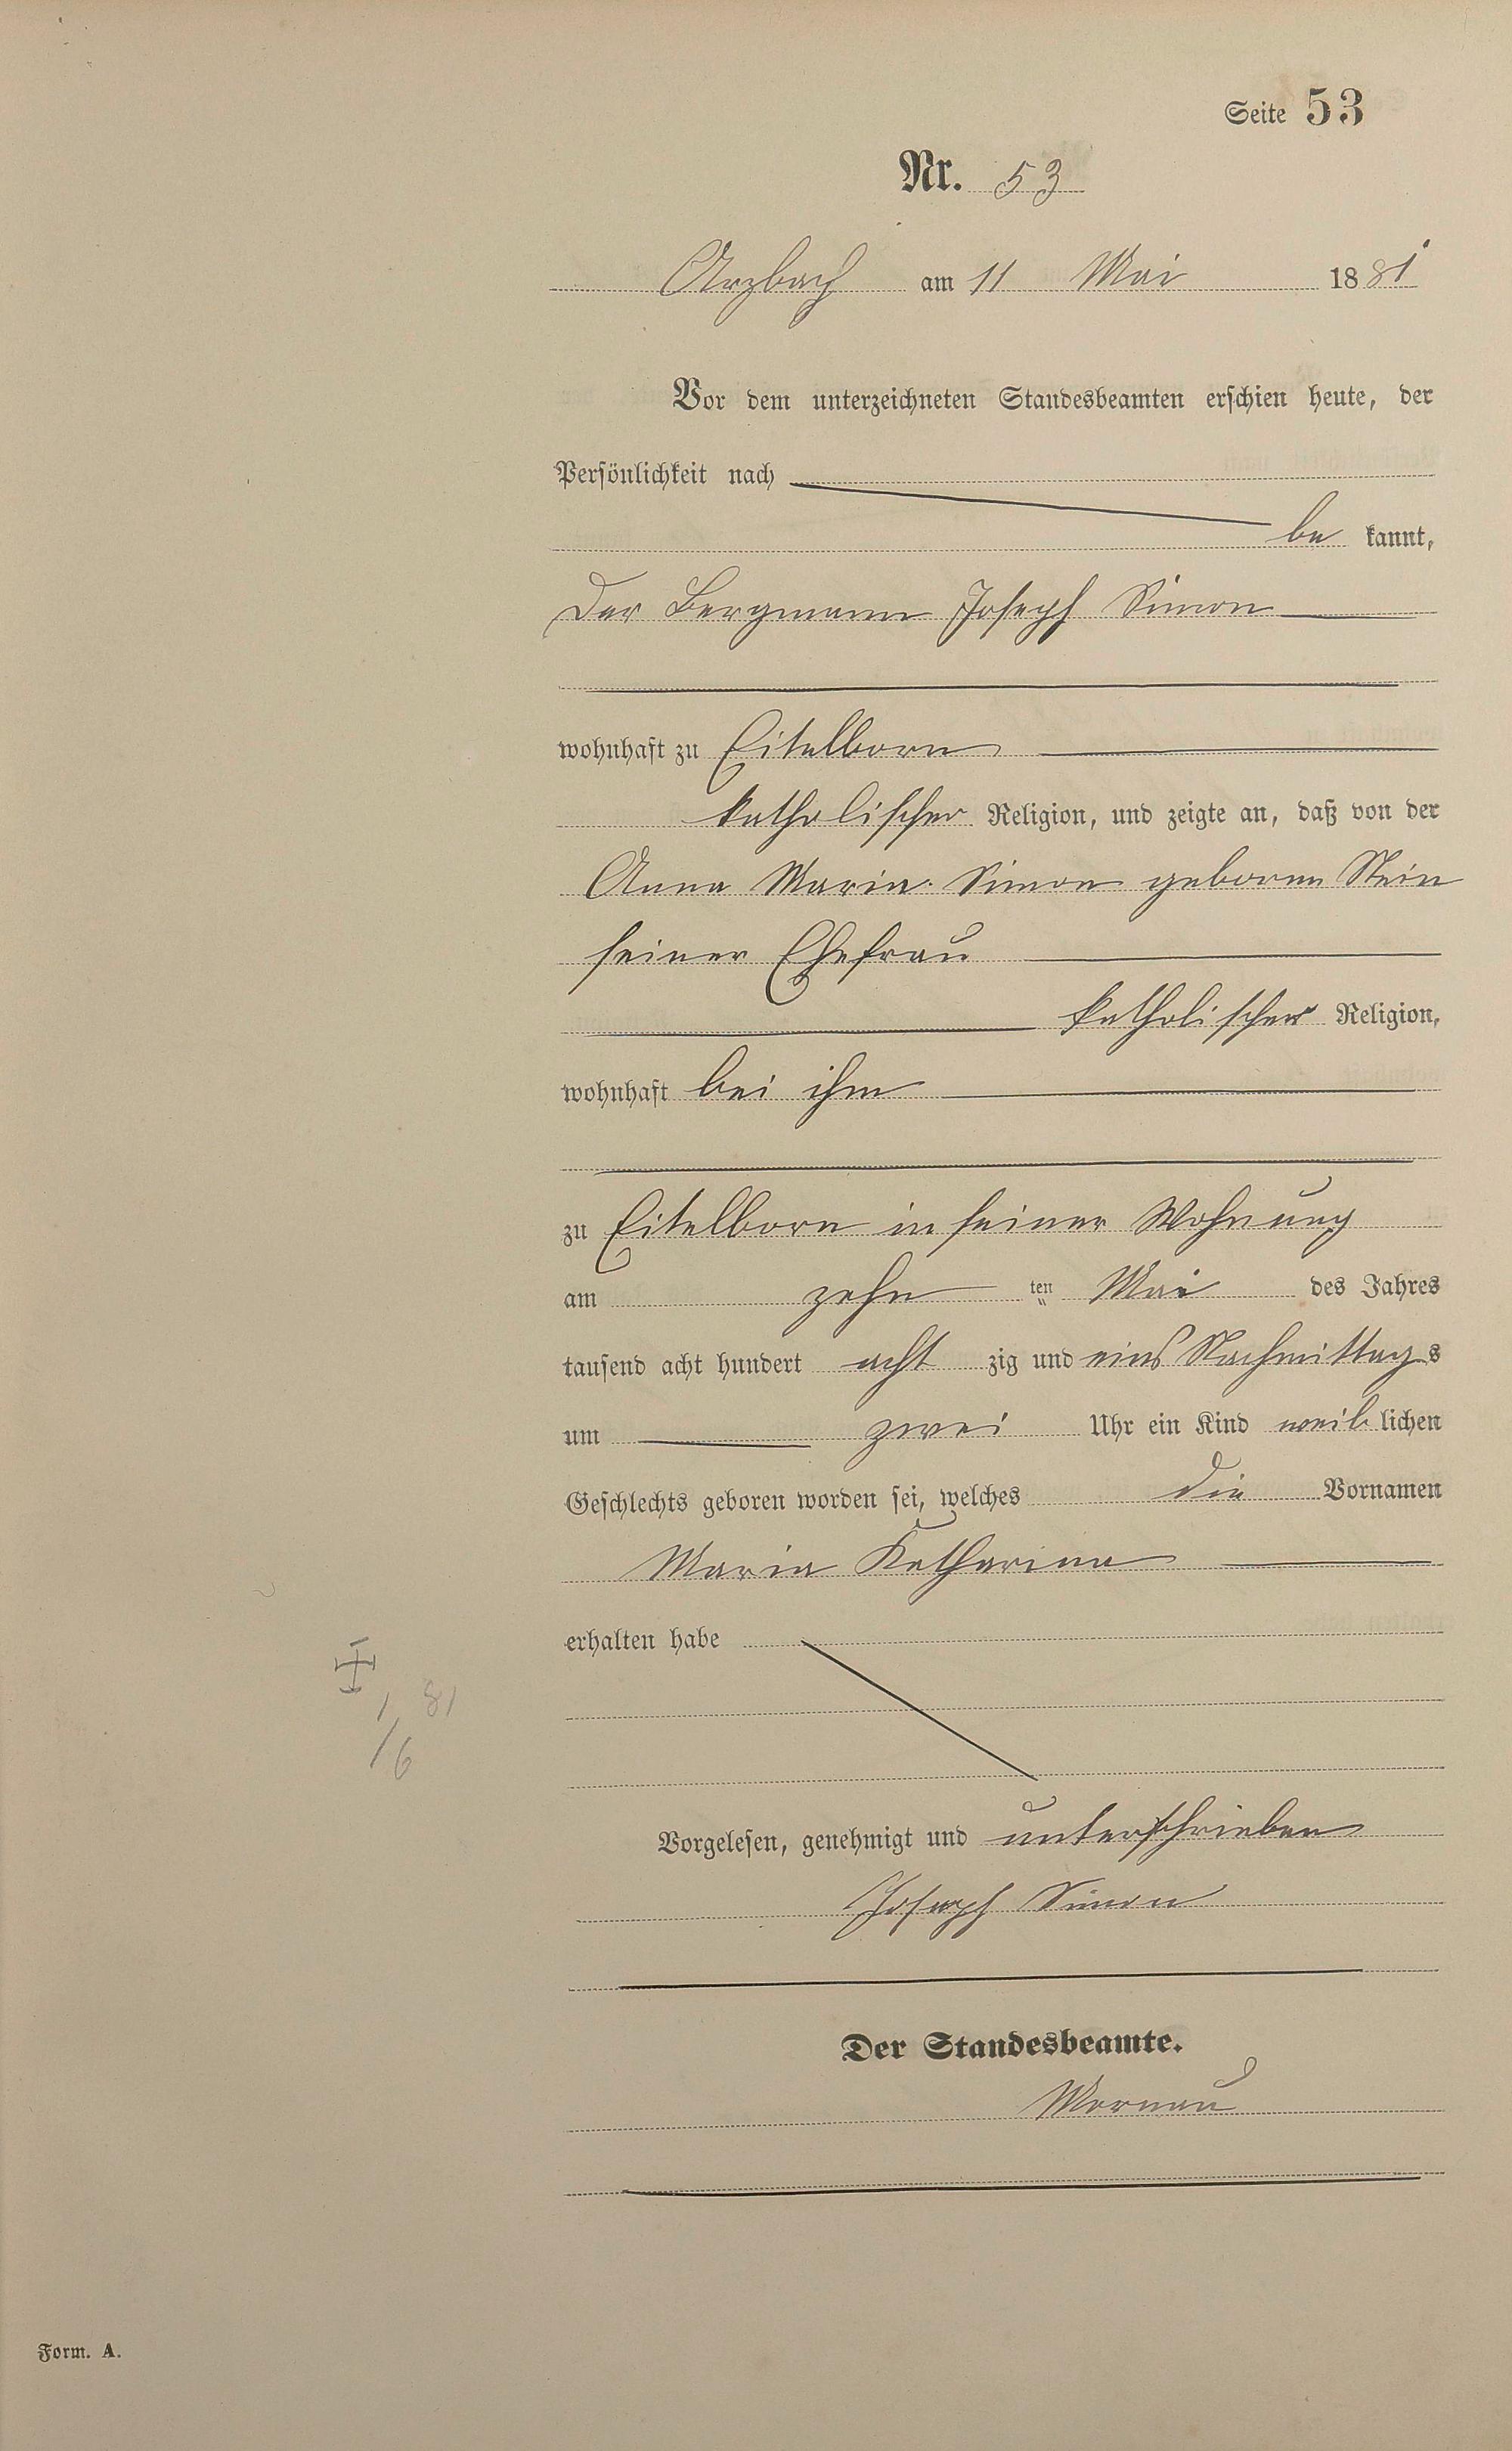 Seite 53
Nr. 53
Arzbach am 11 Mai 1881
Vor dem unterzeichneten Standesbeamten erschien heute, der
Persönlichkeit nach
be kannt,
der Bergmann Joseph Simon
wohnhaft zu Eitelborn
katholischer Religion, und zeigte an, daß von der
Anna Maria Simon geborne Stein
seiner Ehefrau
katholischer Religion,
wohnhaft bei ihm
zu Eitelborn in seiner Wohnung
am zehn ten Mai des Jahres
tausend acht hundert acht zig und eins Nachmittags
um zwei Uhr ein Kind weib lichen
Geschlechts geboren worden sei, welches die Vornamen
Maria Katharina
erhalten habe
1 81
/6
Vorgelesen, genehmigt und unterschrieben
Joseph Simon
Der Standesbeamte.
Form. A.